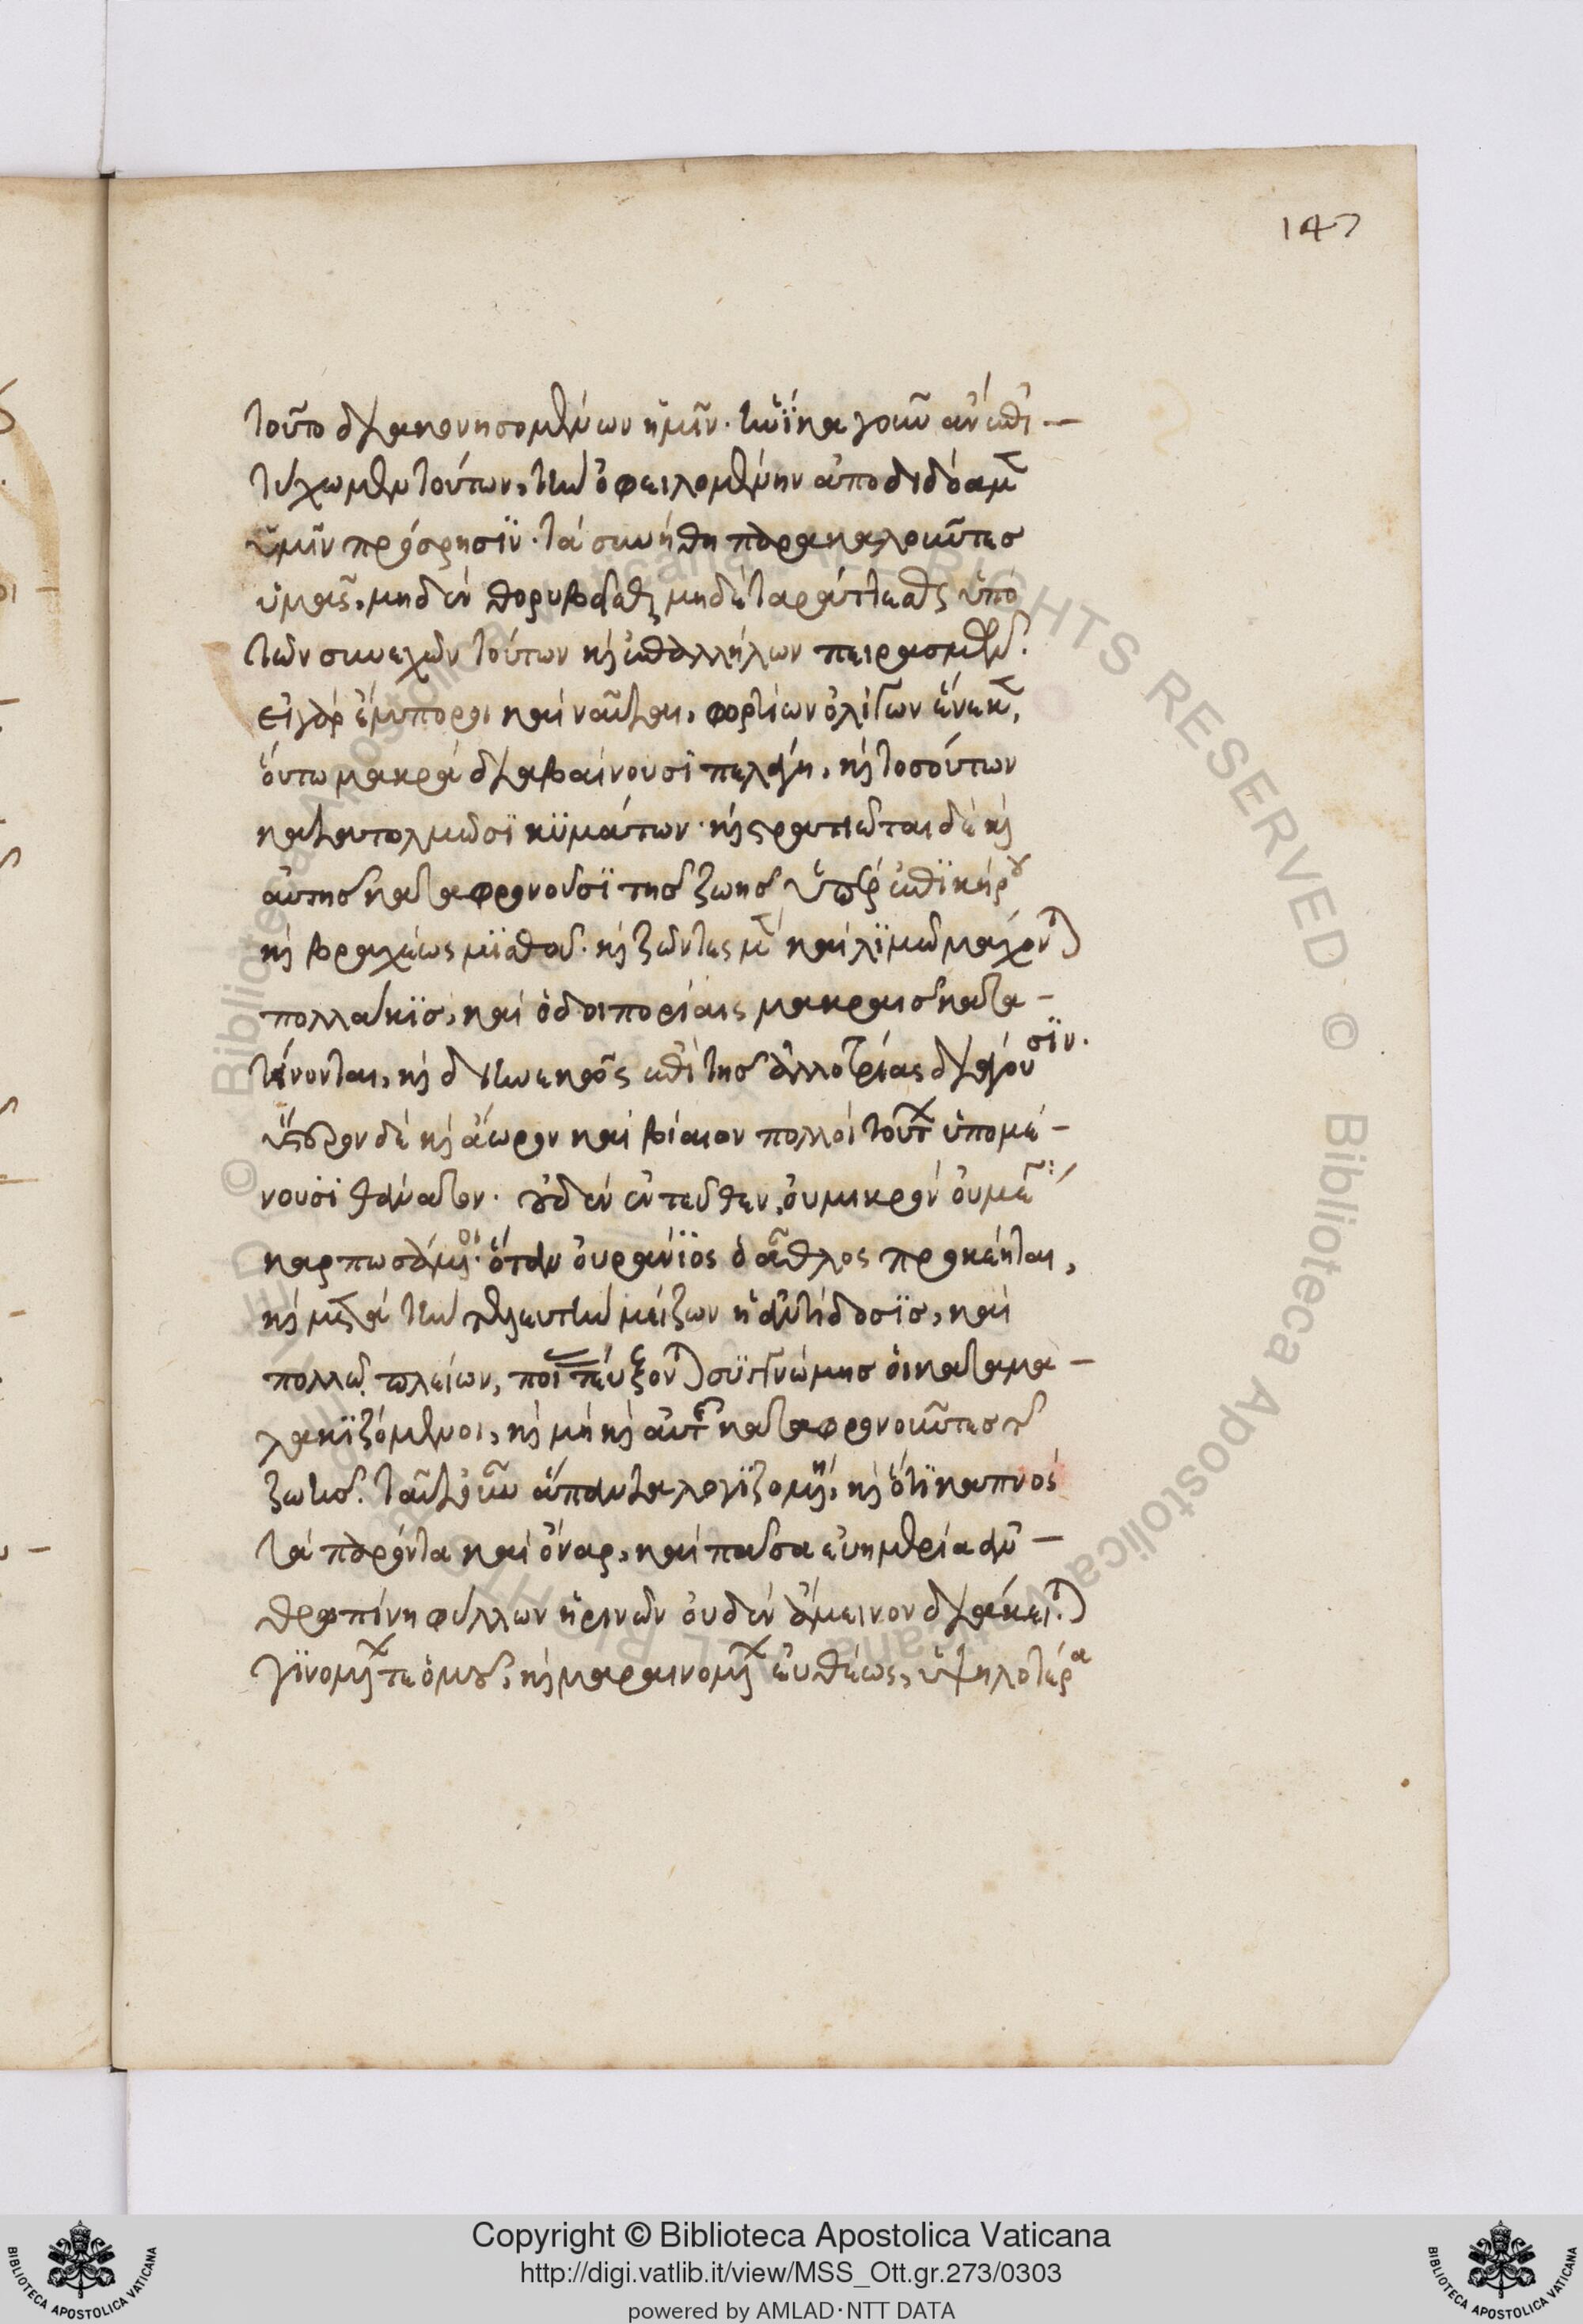 147
τοῦτο διακονησομένων ἡμῖν. ἡνίκα γοῦν ἂν ἐπι-
τύχωμεν τούτων, τὴν ὀφειλομένην ἀποδιδόαμεν
ὑμῖν πρόσρησϊν. τὰ συνήθη παρακαλοῦντες
ὑμᾶς, μηδὲν θορυβεῖσθαι μηδὲ ταράττεσθαι ὑπὸ
τῶν συνεχῶν τούτων καὶ ἐπαλλήλων πειρασμῶν.
εἰ γὰρ ἔμποροι καὶ ναῦται, φορτίων ὀλίγων ἕνεκεν,
οὕτω μακρὰ διαβαίνουσϊ πελάγη, καὶ τοσούτων
κατατολμῶσϊ κϋμάτων. καὶ στρατιῶται δὲ καὶ
αὐτῆς καταφρονοῦσϊ τῆς ζωῆς ὑπὲρ ἐπϊκήρου
καὶ βραχέως μϊσθοῦ. καὶ ζῶντες μὲν καὶ λϊμῶ μάχονται
πολλάκϊς, καὶ ὁδοιπορίαις μακραῖς κατα-
τείνονται, καὶ διηνεκῶς ἐπὶ τῆς ἀλλοτρίας διάγουσϊν.
ὕστερον δὲ καὶ ἄωρον καὶ βίαιον πολλοὶ τούτων ὑπομέ-
νουσϊ θάνατον. οὐδὲν ἐντεῦθεν, οὐ μικρὸν οὐ μέγα
καρπωσάμενοι. ὅταν οὐράνϊος ὁ ἆθλος προκέηται,
καὶ μετὰ τὴν τελευτὴν μείζων ἡ ἀντίδοσϊς, καὶ
πολλῶ πλείων, ποίας τεύξονται σϋγγνώμης οἱ καταμα-
λακϊζόμενοι, καὶ μὴ καὶ αὐτῆς καταφρονοῦντες τῆς
ζωῆς. ταῦτ' οὖν ἅπαντα λογϊζόμενοι, καὶ ὅτϊ καπνὸς
τὰ παρόντα καὶ ὄναρ, καὶ πᾶσα εὐημερία ἀν-
θρωπίνη φύλλων ἠρινῶν οὐδὲν ἄμεινον διάκειται.
γϊνομένων τε ὁμοῦ, καὶ μαραινομένων εὐθέως, ὑψηλοτέρα
Copyright © Biblioteca Apostolica Vaticana
http://digi.vatlib.it/view/MSS_Ott.gr.273/0303
powered by AMLAD·NTT DATA